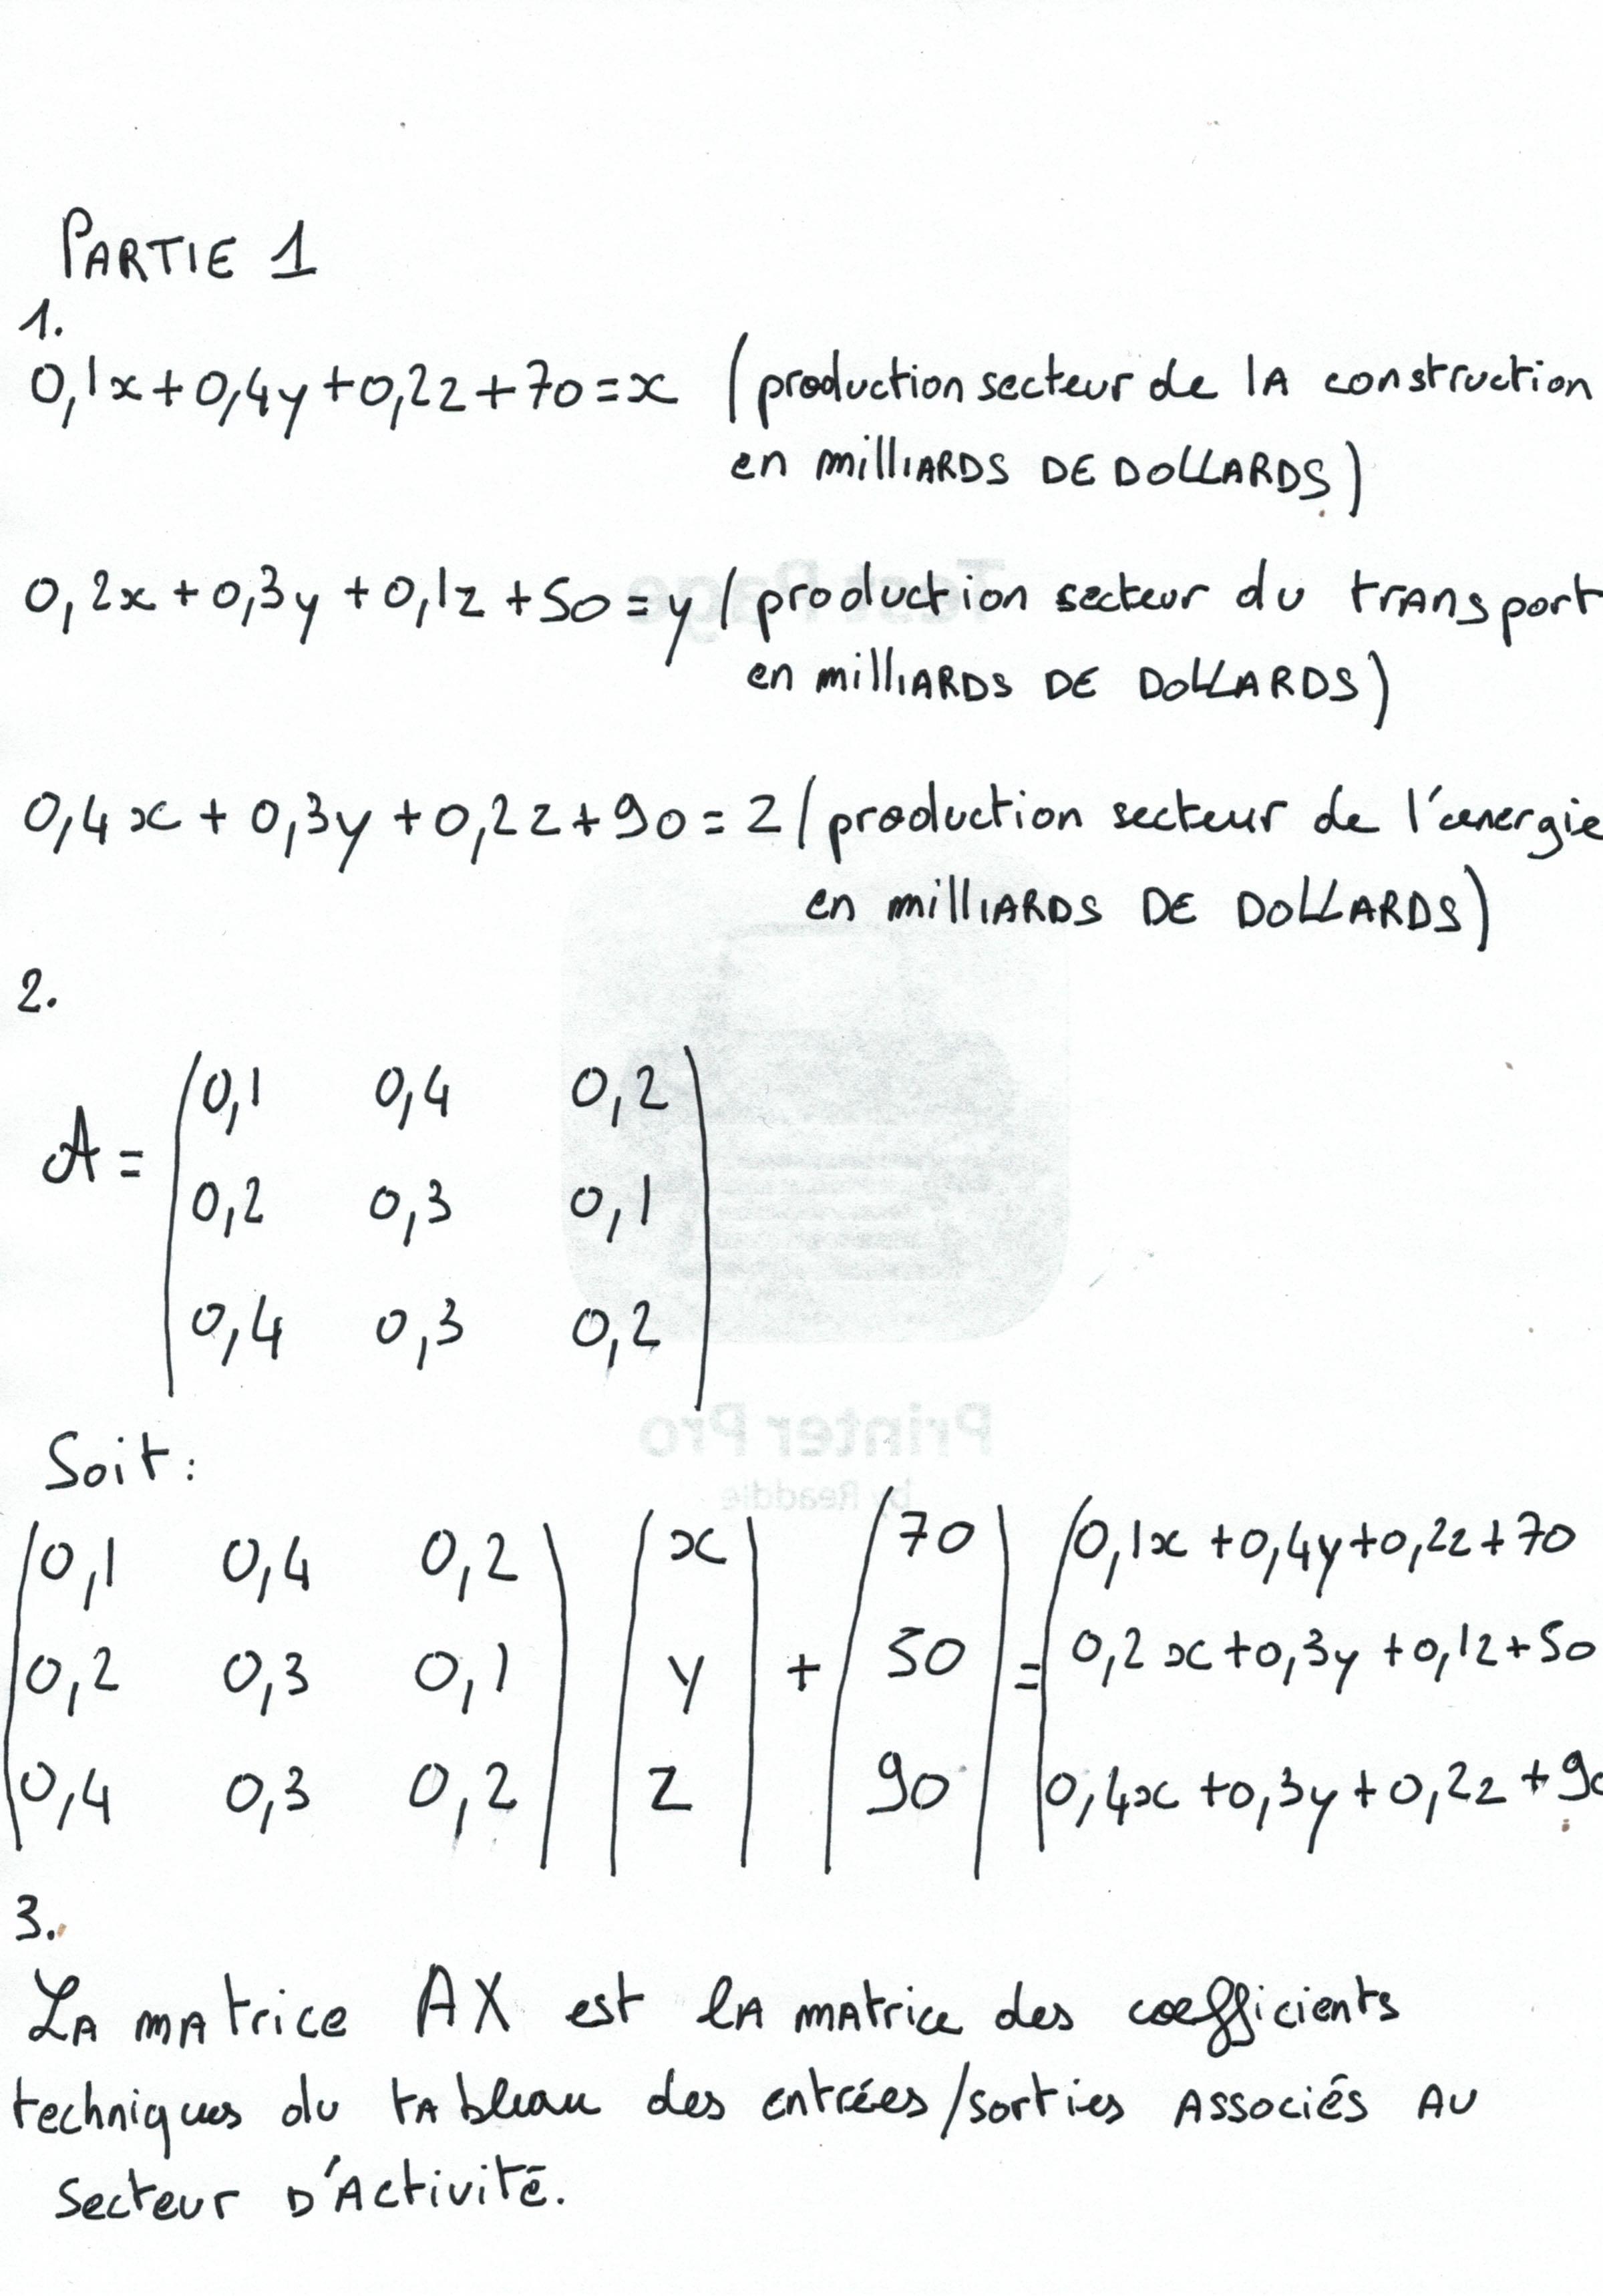 PARTIE 1
1.
0,1x+0,4y+0,2z+70=x (production secteur de lA construction
en millIARDS DE DOLLARDS)
0,2x+0,3y+0,1z+50=y (production secteur du trAnsport
en millIARDS DE DOLLARDS)
0,4x+0,3y+0,2z+90=z (production secteur de l'énergie
en millIARDS DE DOLLARDS)
2.
A= (0,1 0,4 0,2
0,2 0,3 0,1
0,4 0,3 0,2)
Soit:
(0,1 0,4 0,2) (x) + (70) = (0,1x+0,4y+0,2z+70
0,2 0,3 0,1 y 50 0,2x+0,3y+0,1z+50
0,4 0,3 0,2 z 90 0,4x+0,3y+0,2z+90
3.
LA mAtrice AX est lA mAtrice des coefficients
techniques du tAbleau des entrées/sorties Associés AU
secteur D'Activité.
Test Page
Printer Pro
by Readdle